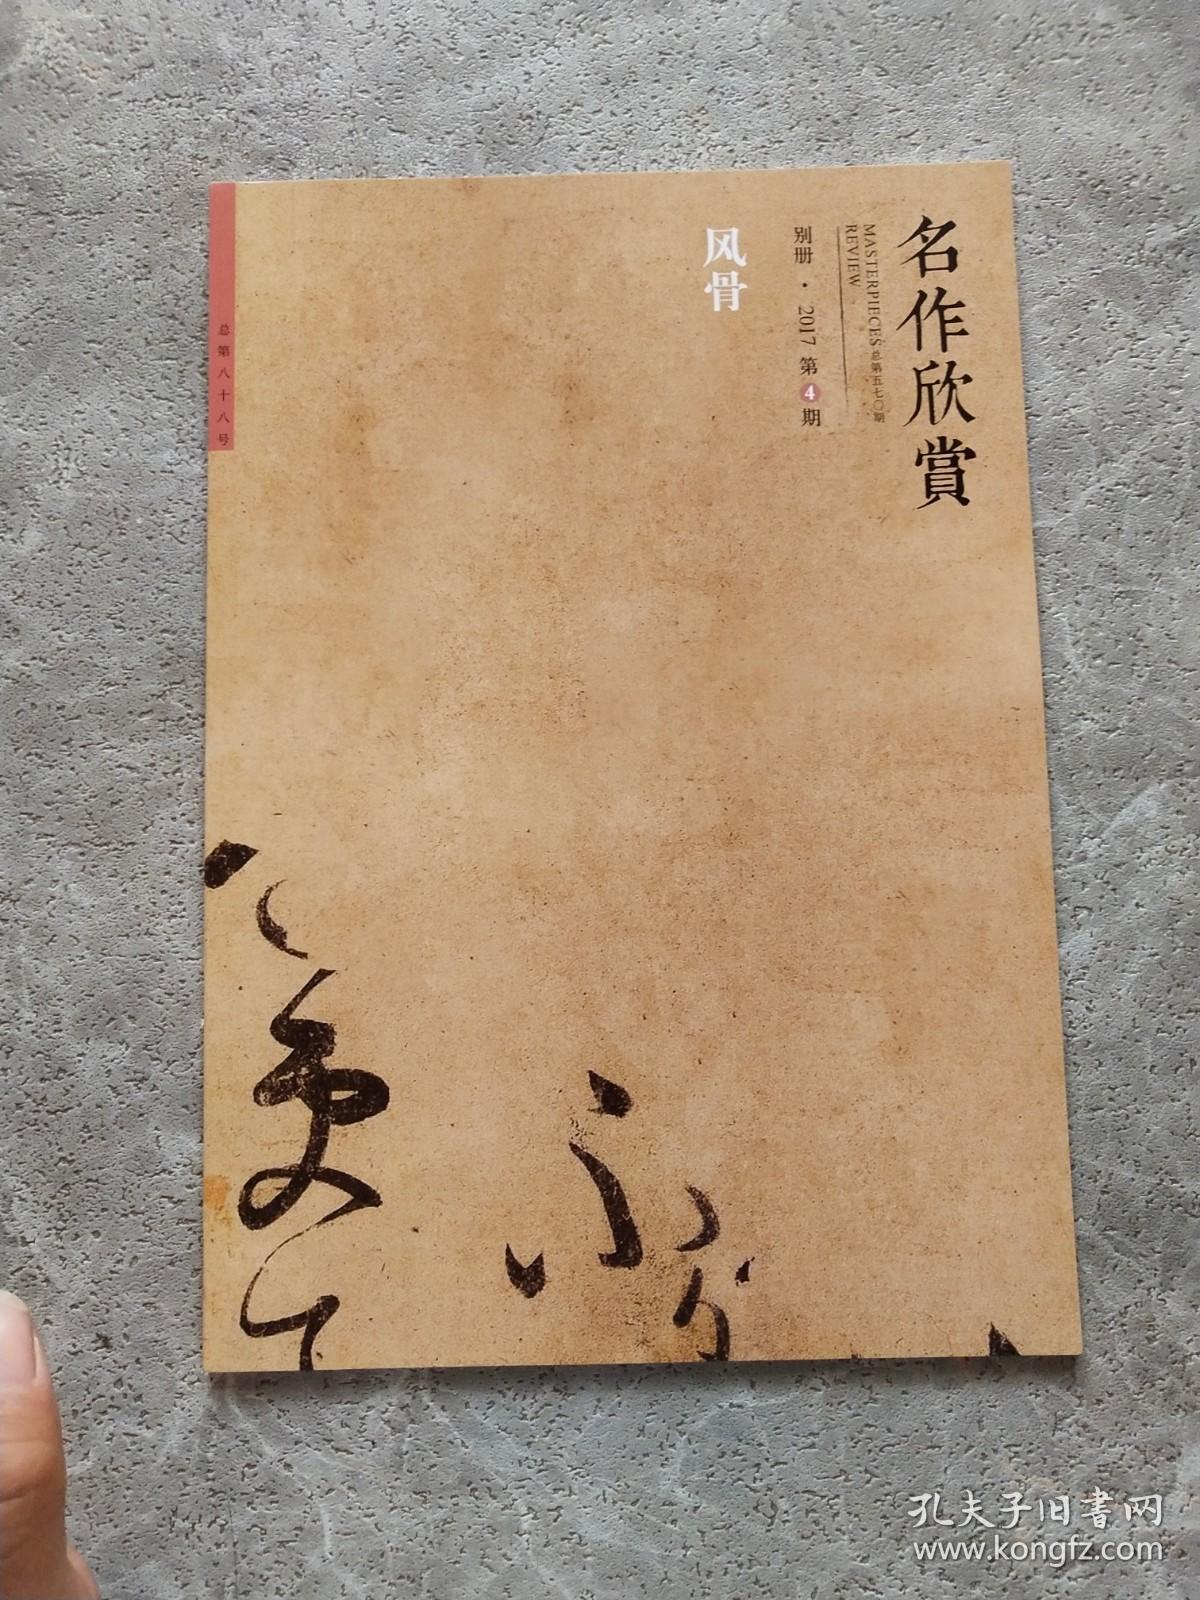 名作欣賞
MASTERPIECES
REVIEW
总第五七〇期
别册·2017第4期
风骨
总第八十八号
孔夫子旧書网
www.kongfz.com